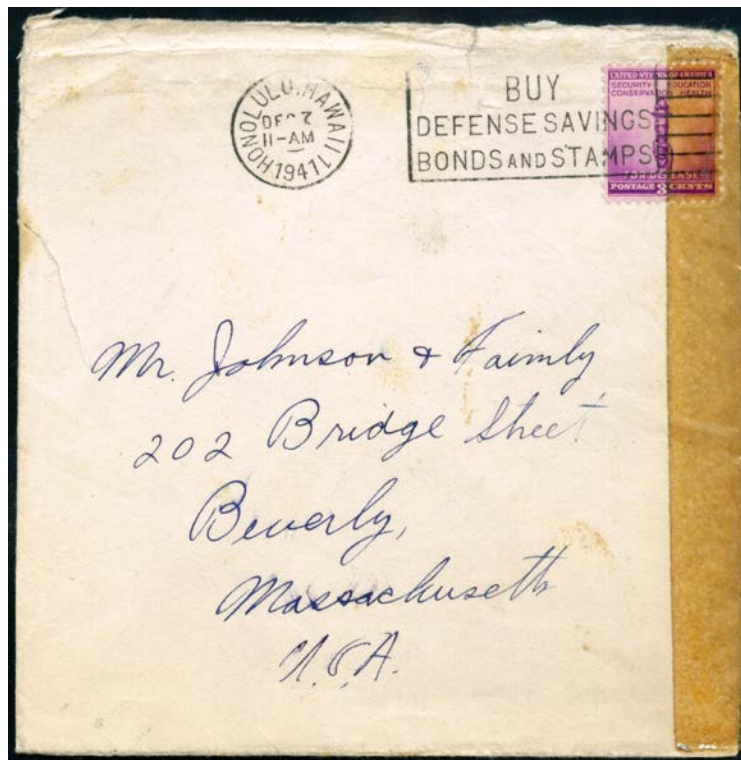 HONOLULU, HAWAII
DEC 7
11-AM
1941
BUY
DEFENSE SAVINGS
BONDS AND STAMPS
UNITED STATES OF AMERICA
SECURITY EDUCATION
CONSERVATION HEALTH
FOR DEFENSE
POSTAGE 3 CENTS
Mr. Johnson & Faimly
202 Bridge Street
Beverly,
Massachusetts
U.S.A.